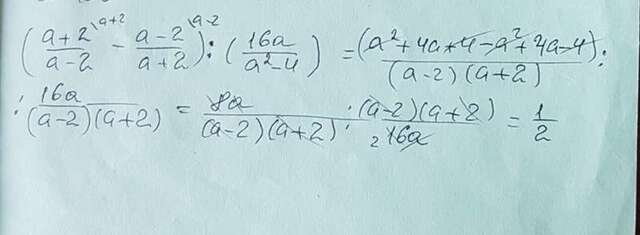 (a+2/a-2 \a+2 - a-2/a+2 \a-2) : (16a/a²-4) = (a²+4a+4-a²+4a-4)/(a-2)(a+2) :
: 16a/(a-2)(a+2) = 8a/(a-2)(a+2) · (a-2)(a+2)/2 16a = 1/2